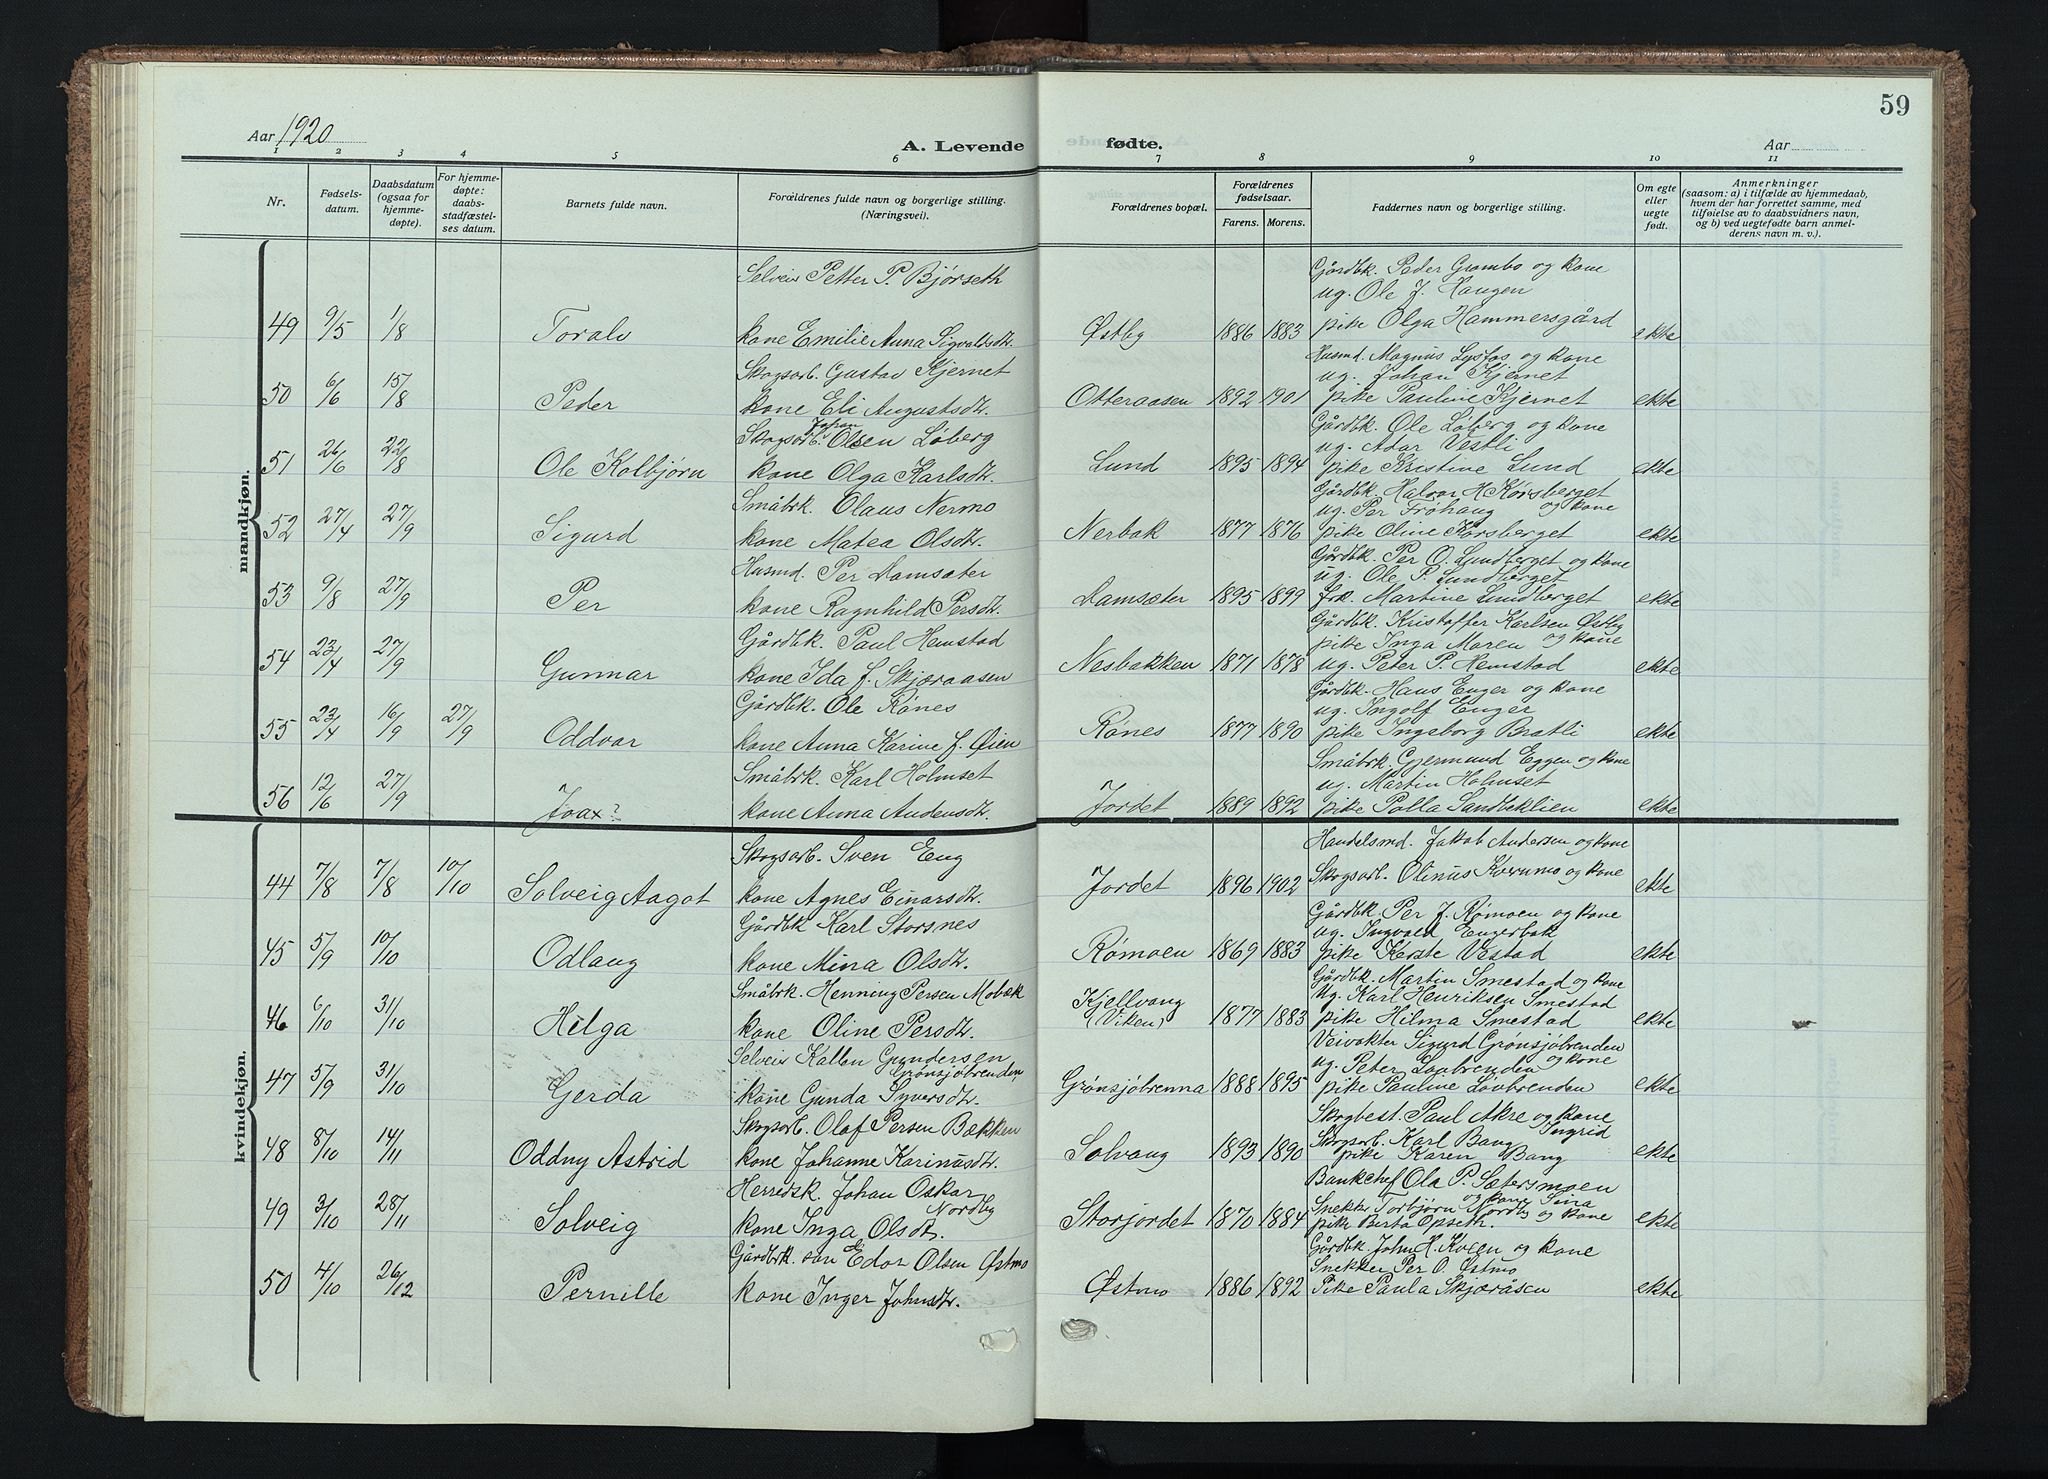 59
Aar 1920
A. Levende fødte.
Aar
1 2 3 4 5 6 7 8 9 10 11
Nr.
Fødsels-
datum.
Daabsdatum
(ogsaa for
hjemme-
døpte).
For hjemme-
døpte:
daabs-
stadfæstel-
ses datum.
Barnets fulde navn.
Forældrenes fulde navn og borgerlige stilling.
(Næringsvei).
Forældrenes bopæl.
Forældrenes
fødselsaar.
Farens. Morens.
Faddernes navn og borgerlige stilling.
Om egte
eller
uegte
født.
Anmerkninger
(saasom: a) i tilfælde av hjemmedaab,
hvem der har forrettet samme, med
tilføielse av to daabsvidners navn,
og b) ved uegtefødte barn anmel-
derens navn m. v.).
mandkjøn.
Selveier Petter P. Bjørseth
Gårdbk. Peder Grambo og kone
ug. Ole J. Haugen
49 9/5 1/8 Toralv kone Emilie Anna Sigvaldsdtr. Østby 1886 1883 pike Olga Hammersgård ekte
Skogsarb. Gustav Kjernet
Husmd. Magnus Lysfos og kone
ug. Johan Kjernet
50 6/6 15/8 Peder kone Eli Augustsdtr. Otteraasen 1892 1901 pike Pauline Kjernet ekte
Skogsarb. Johan Olsen Løberg
Gårdbk. Ole Løberg og kone
ug. Adar Vestli
51 26/6 22/8 Ole Kolbjørn kone Olga Karlsdtr. Lund 1895 1894 pike Kristine Lund ekte
Småbrk. Olaus Nermo
Gårdbk. Halvor H. Korsberget
ug. Per Frøhaug og kone
52 27/4 27/9 Sigurd kone Matea Olsdtr. Nerbak 1877 1876 pike Oline Korsberget ekte
Husmd. Per Damsæter
Gårdbk. Per O. Lundberget og kone
ug. Ole P. Lundberget
53 9/8 27/9 Per kone Ragnhild Persdtr. Damsæter 1895 1899 frk. Martine Lundberget ekte
Gårdbk. Paul Hemstad
Gårdbk. Kristoffer Karlsen Østby
pike Inga Moren og kone
54 23/4 27/9 Gunnar kone Ida f. Skjæraasen Nesbakken 1871 1878 ug. Peter P. Hemstad ekte
Gårdbk. Ole Rønes
Gårdbk. Hans Enger og kone
ug. Ingolf Enger
55 23/4 16/9 27/9 Oddvar kone Anna Karine f. Øien Rønes 1877 1890 pike Ingeborg Bratli ekte
Småbrk. Karl Holmset
Småbrk. Gjermund Eggen og kone
ug. Martin Holmset
56 12/6 27/9 Joax? kone Anna Audensdtr. Jordet 1889 1892 pike Polla Sandbeklien ekte
kvindekjøn.
Skogsarb. Sven Eng
Handelsmd. Jakob Andersen og kone
Skogsarb. Olinus Kverumo og kone
44 7/8 7/8 10/10 Solveig Aagot kone Agnes Einarsdtr. Jordet 1896 1902 ekte
Gårdbk Karl Storsnes
Gårdbk. Per J. Rømoen og kone
ug. Ingvald Engerbak
45 5/9 10/10 Odlaug kone Mina Olsdtr. Rømoen 1869 1883 pike Kerste Vestad ekte
Småbrk. Henning Persen Mobæk
Gårdbk. Martin Smestad og kone
Ug. Karl Henriksen Smestad
46 6/10 31/10 Helga kone Oline Persdtr. Kjellvang (Viken) 1877 1883 pike Hilma Smestad ekte
Selveier Kallan Gundersen Grønsjøbrenden
Veivokter Sigurd Grønsjøbrenden
ug. Peter Løvbrenden og kone
47 5/9 31/10 Gerda kone Gunda Syversdtr. Grønsjøbrenna 1888 1895 pike Pauline Løvbrenden ekte
Skogsarb. Olaf Persen Bækken
Skogbest. Paul Akre og kone
Skogsarb. Karl Bang Ingrid
48 8/10 14/11 Oddny Astrid kone Johanne Karinusdtr. Solvang 1893 1890 pike Karen Bang ekte
Herredsk. Johan Oskar Nordby
Bankchef Ola P. Sætersmoen
og kone Sina
Snekker Torbjørn Nordby og kone
49 3/10 28/11 Solveig kone Inga Olsdtr. Storjordet 1870 1884 pike Berta Opseth. ekte
Gårdbrk. søn Edor Olsen Østmo
Gårdbk. John H. Kveen og kone
Snekker Per O. Østmo
50 4/10 26/12 Pernille kone Inger Johnsdtr. Østmo 1886 1892 Pike Paula Skjæråsen ekte